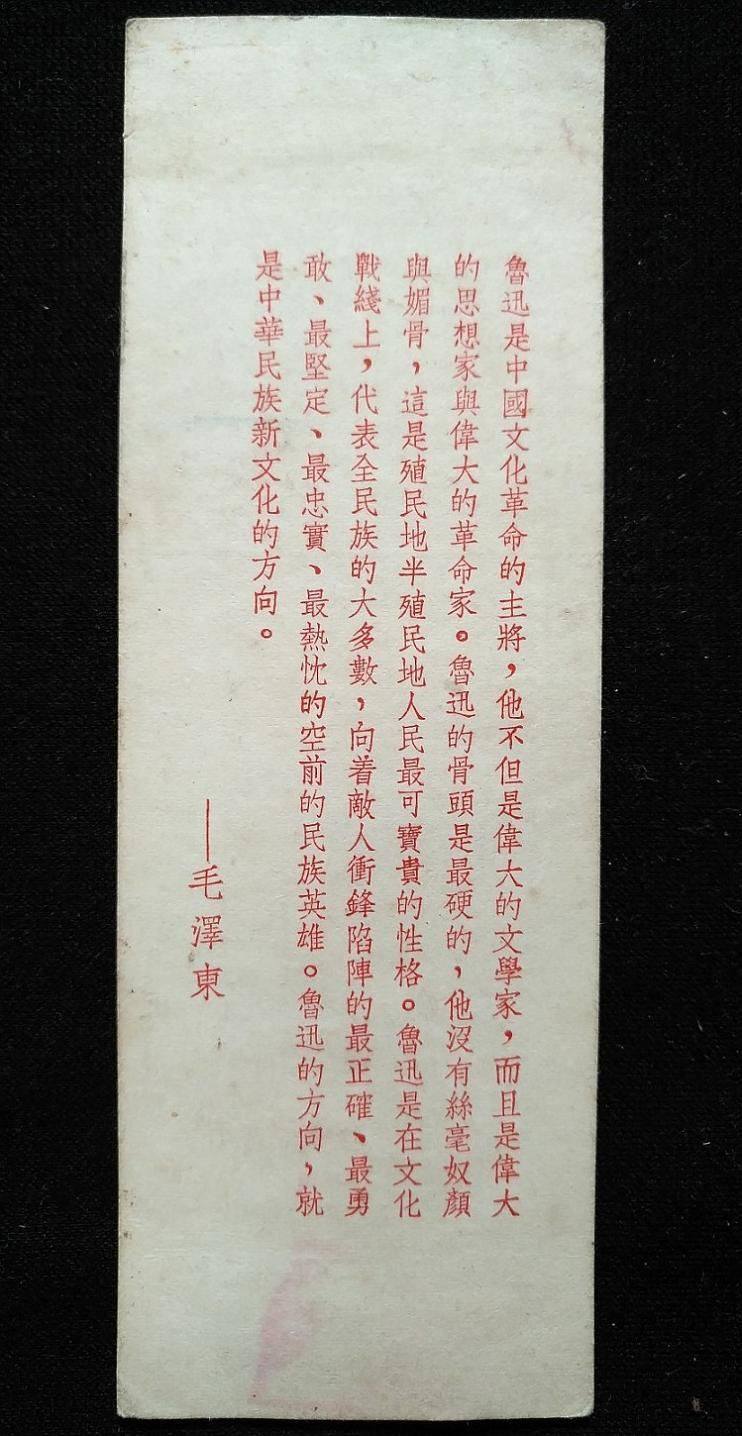 魯迅是中國文化革命的主將，他不但是偉大的文學家，而且是偉大
的思想家與偉大的革命家。魯迅的骨頭是最硬的，他沒有絲毫奴顏
與媚骨，這是殖民地半殖民地人民最可寶貴的性格。魯迅是在文化
戰綫上，代表全民族的大多數，向着敵人衝鋒陷陣的最正確、最勇
敢、最堅定、最忠實、最熱忱的空前的民族英雄。魯迅的方向，就
是中華民族新文化的方向。
——毛澤東